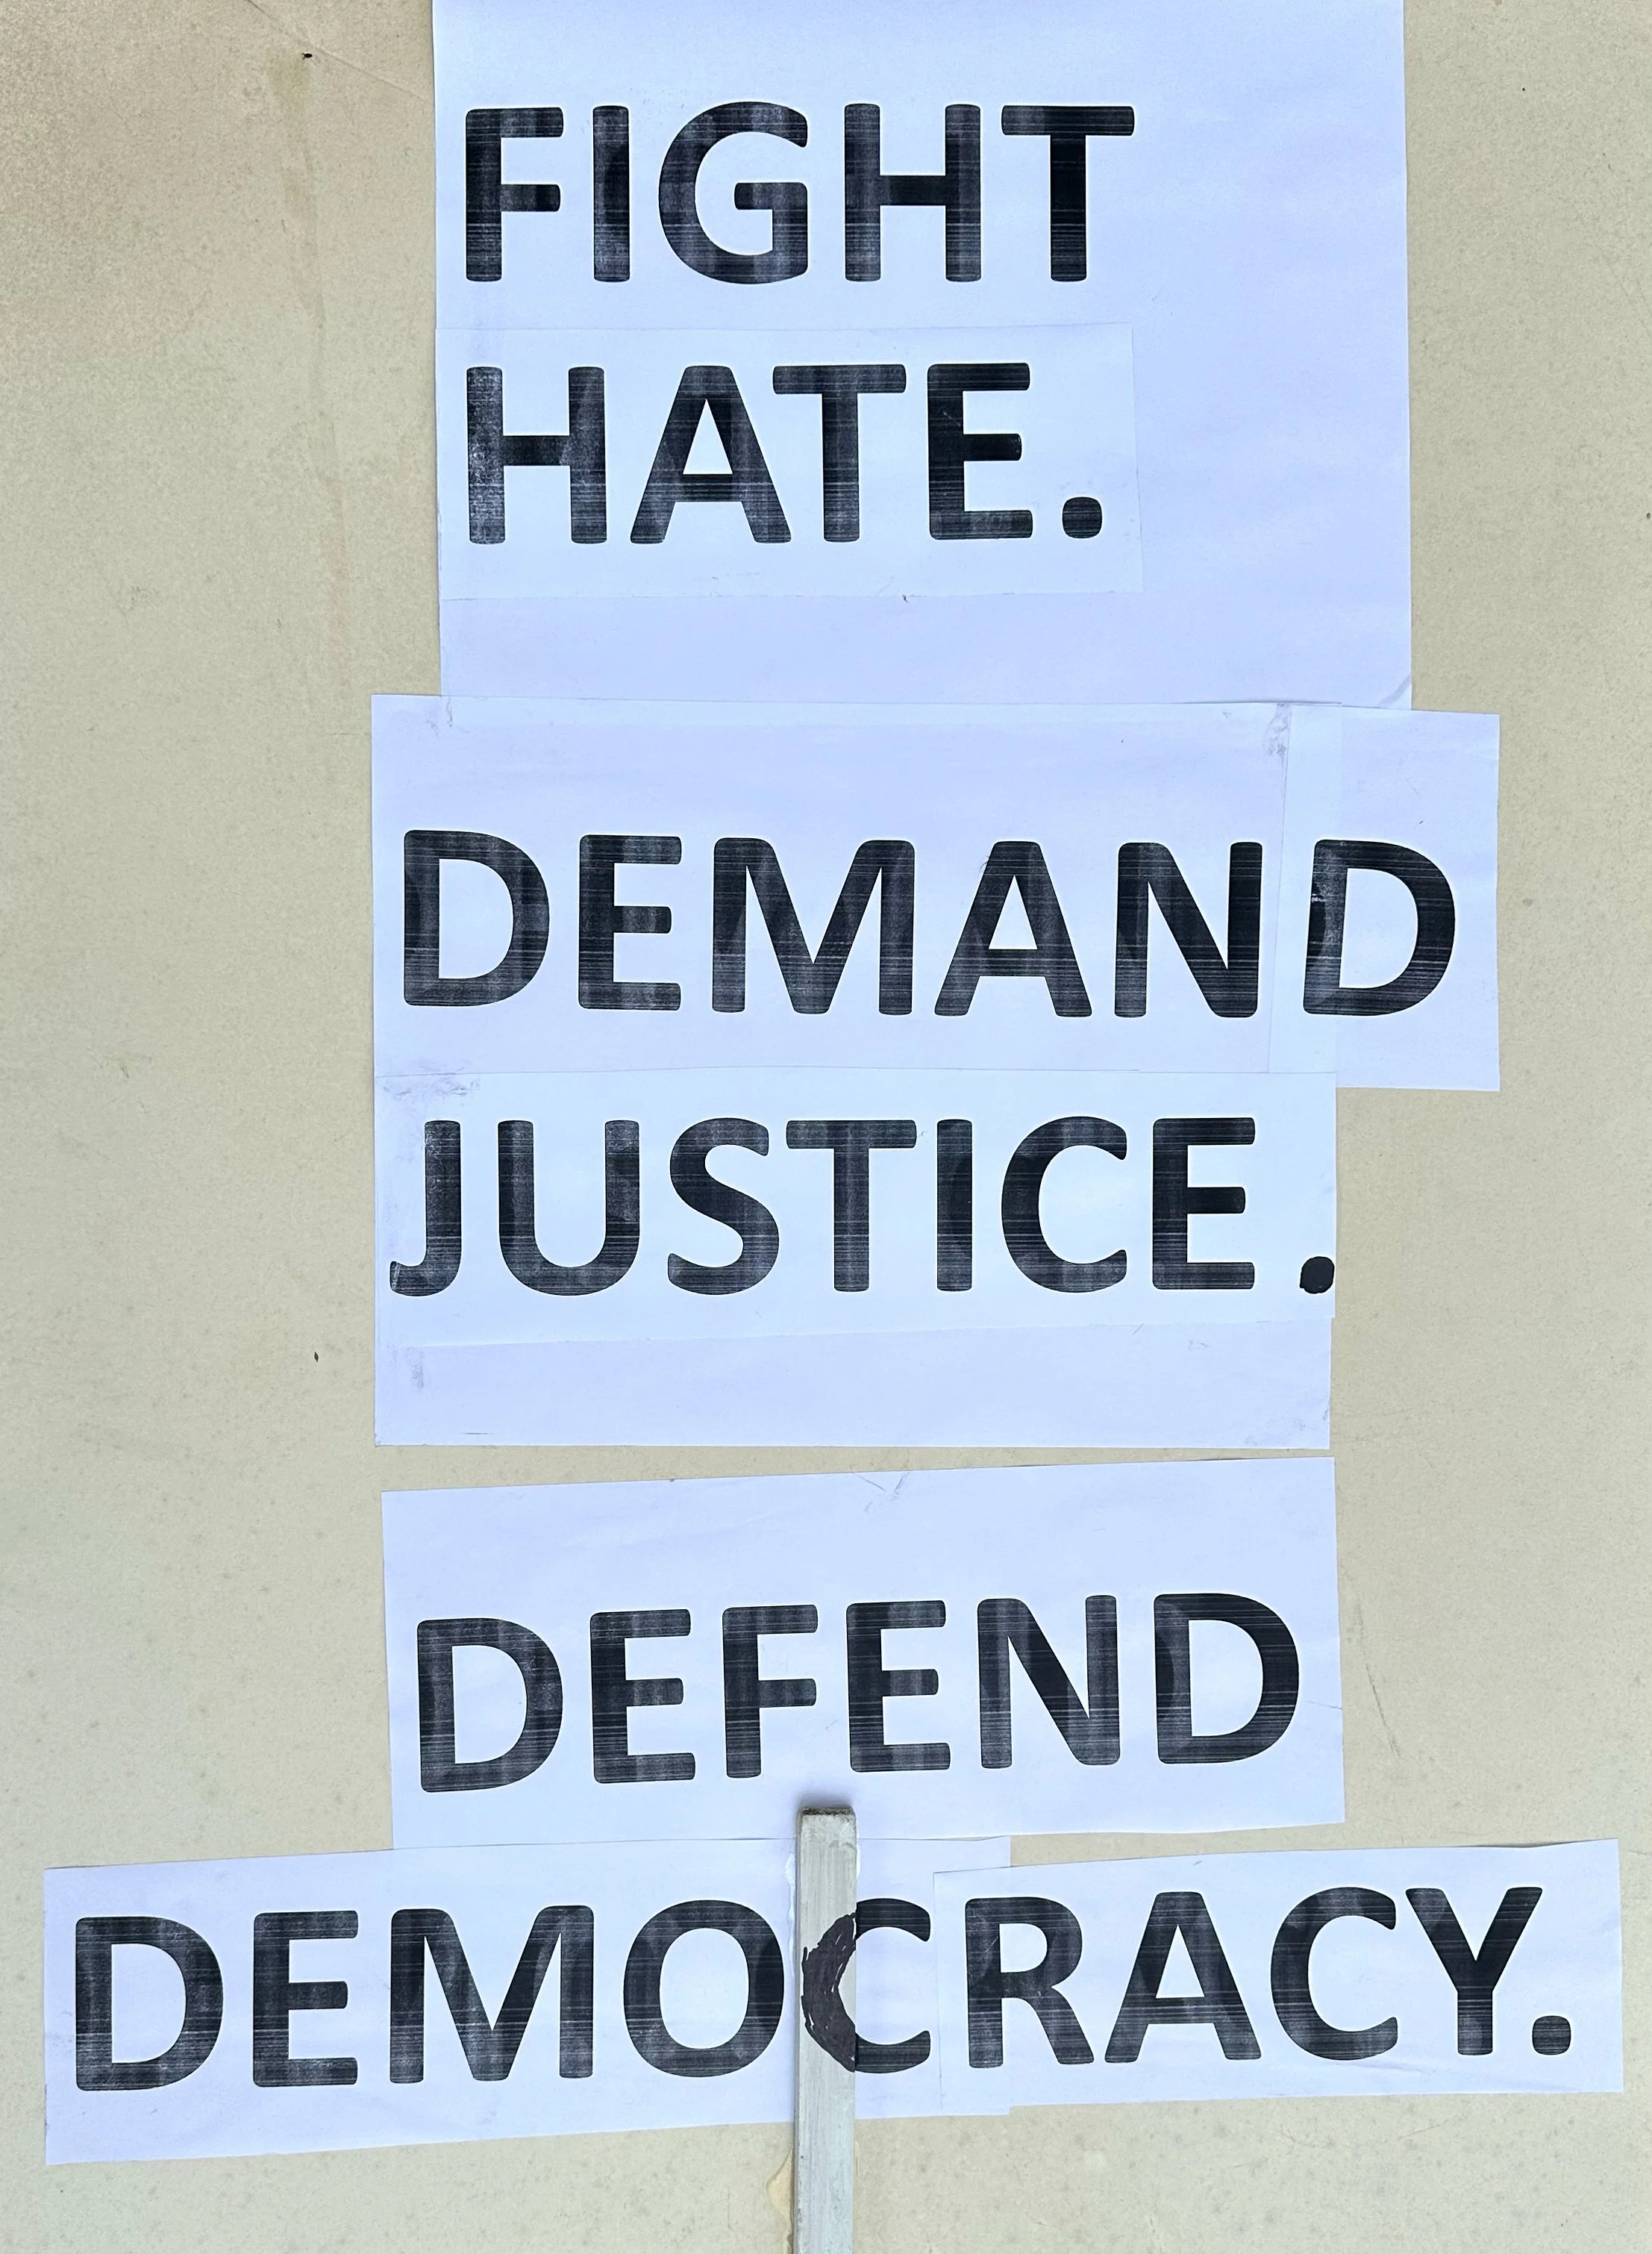 FIGHT
HATE.
DEMAND
JUSTICE.
DEFEND
DEMOCRACY.